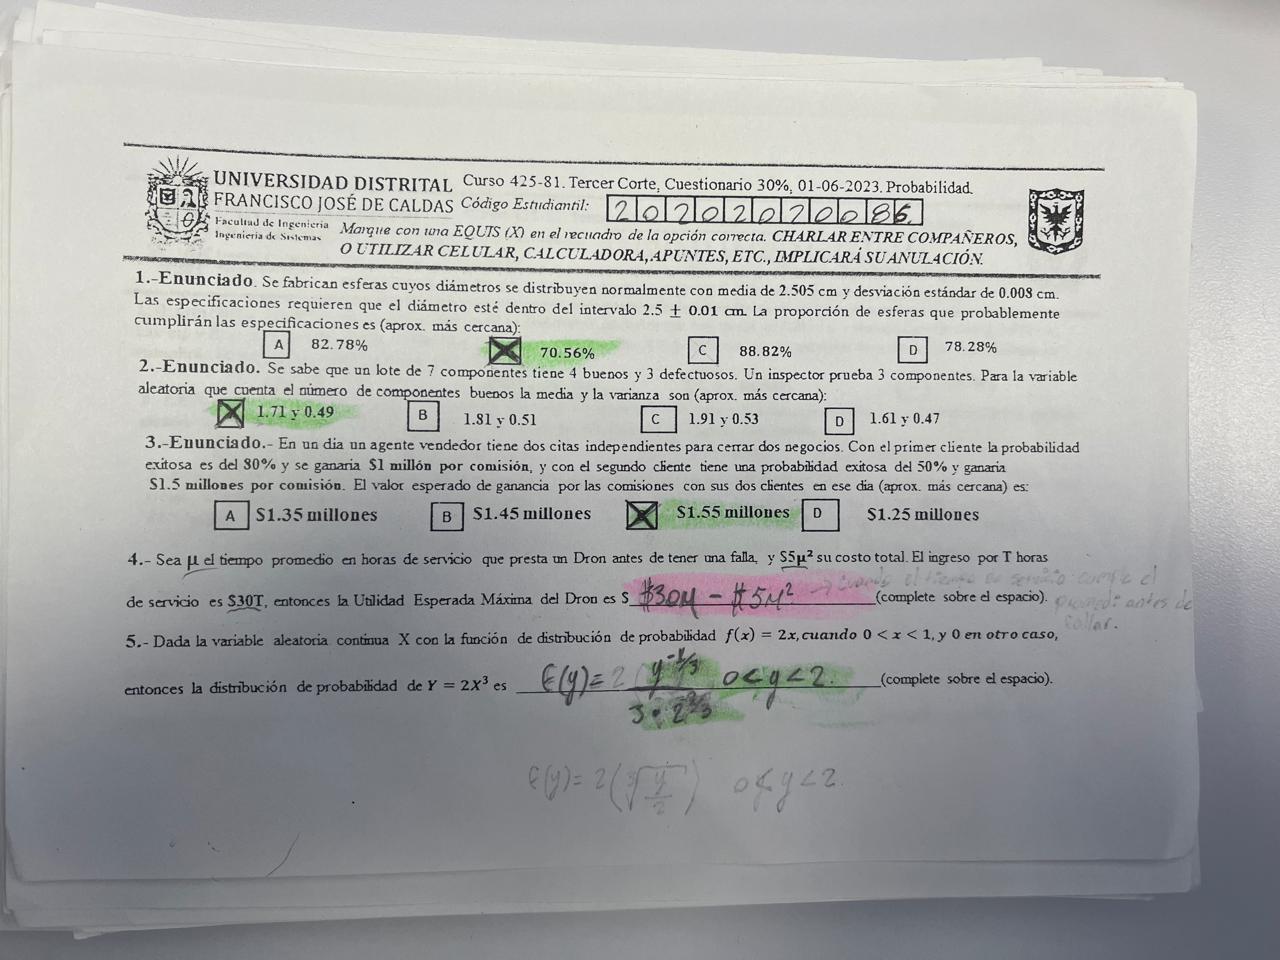 UNIVERSIDAD DISTRITAL Curso 425-81. Tercer Corte, Cuestionario 30%, 01-06-2023. Probabilidad.
FRANCISCO JOSÉ DE CALDAS Código Estudiantil: 20202020086
Facultad de Ingeniería Marque con una EQUIS (X) en el recuadro de la opción correcta. CHARLAR ENTRE COMPAÑEROS,
Ingeniería de Sistemas O UTILIZAR CELULAR, CALCULADORA, APUNTES, ETC., IMPLICARÁ SU ANULACIÓN.
1.-Enunciado. Se fabrican esferas cuyos diámetros se distribuyen normalmente con media de 2.505 cm y desviación estándar de 0.008 cm.
Las especificaciones requieren que el diámetro esté dentro del intervalo 2.5 ± 0.01 cm. La proporción de esferas que probablemente
cumplirán las especificaciones es (aprox. más cercana):
A 82.78% X 70.56% C 88.82% D 78.28%
2.-Enunciado. Se sabe que un lote de 7 componentes tiene 4 buenos y 3 defectuosos. Un inspector prueba 3 componentes. Para la variable
aleatoria que cuenta el número de componentes buenos la media y la varianza son (aprox. más cercana):
X 1.71 y 0.49 B 1.81 y 0.51 C 1.91 y 0.53 D 1.61 y 0.47
3.-Enunciado.- En un dia un agente vendedor tiene dos citas independientes para cerrar dos negocios. Con el primer cliente la probabilidad
exitosa es del 80% y se ganaria $1 millón por comisión, y con el segundo cliente tiene una probabilidad exitosa del 50% y ganaria
$1.5 millones por comisión. El valor esperado de ganancia por las comisiones con sus dos clientes en ese dia (aprox. más cercana) es:
A $1.35 millones B $1.45 millones X $1.55 millones D $1.25 millones
4.- Sea μ el tiempo promedio en horas de servicio que presta un Dron antes de tener una falla, y $5μ² su costo total. El ingreso por T horas
de servicio es $30T, entonces la Utilidad Esperada Máxima del Dron es $ $30μ - $5μ² (complete sobre el espacio).
→ cuando el tiempo de servicio cumple el
antes de
fallar.
5.- Dada la variable aleatoria continua X con la función de distribución de probabilidad f(x) = 2x, cuando 0 < x < 1, y 0 en otro caso,
entonces la distribución de probabilidad de Y = 2X³ es f(y)= 2 y^-1/3 / 3 · 2^2/3 0<y<2. (complete sobre el espacio).
f(y)= 2(∛(y/2)) 0<y<2.